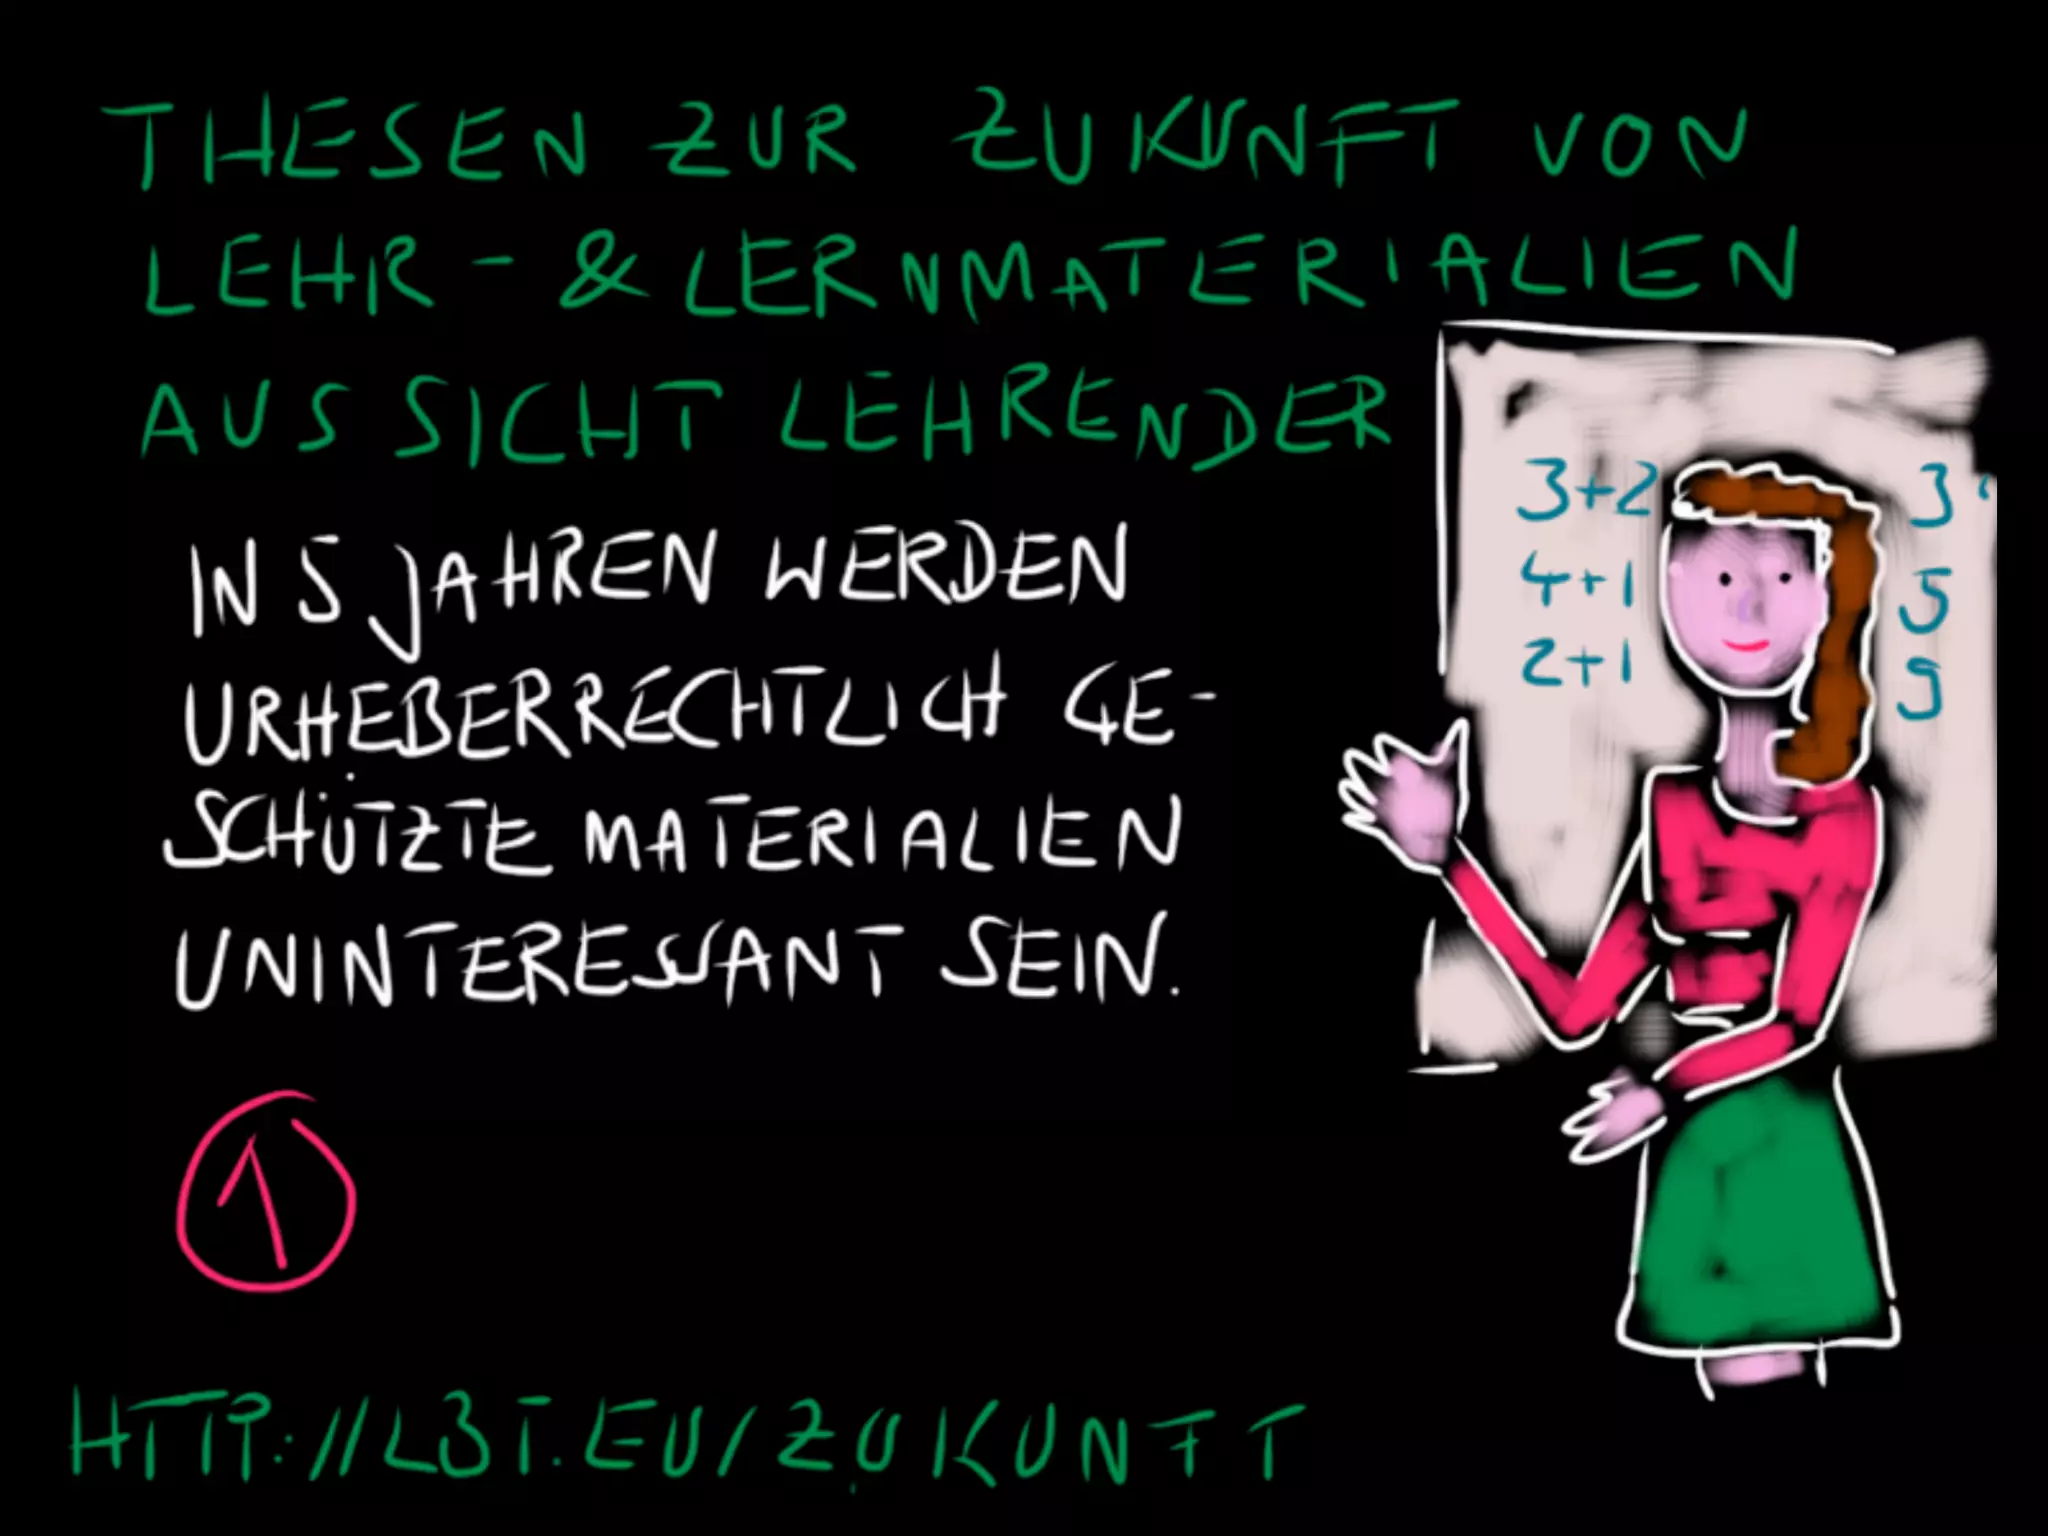 THESEN ZUR ZUKUNFT VON
LEHR- & LERNMATERIALIEN
AUS SICHT LEHRENDER
IN 5 JAHREN WERDEN
URHEBERRECHTLICH GE-
SCHÜTZTE MATERIALIEN
UNINTERESSANT SEIN.
3+2
4+1
2+1
3
5
9
1
HTTP://L3T.EU/ZUKUNFT